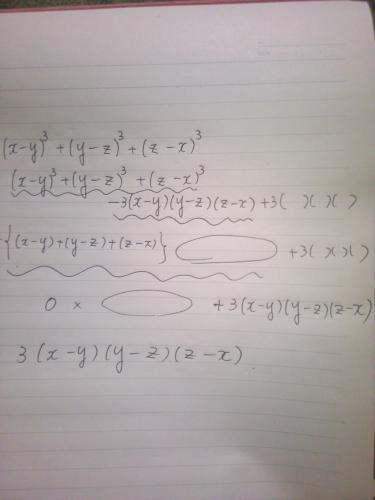 (x-y)³ + (y-z)³ + (z-x)³
(x-y)³ + (y-z)³ + (z-x)³
-3(x-y)(y-z)(z-x) + 3( )( )( )
{(x-y)+(y-z)+(z-x)} + 3( )( )( )
0 × + 3(x-y)(y-z)(z-x)
3(x-y)(y-z)(z-x)